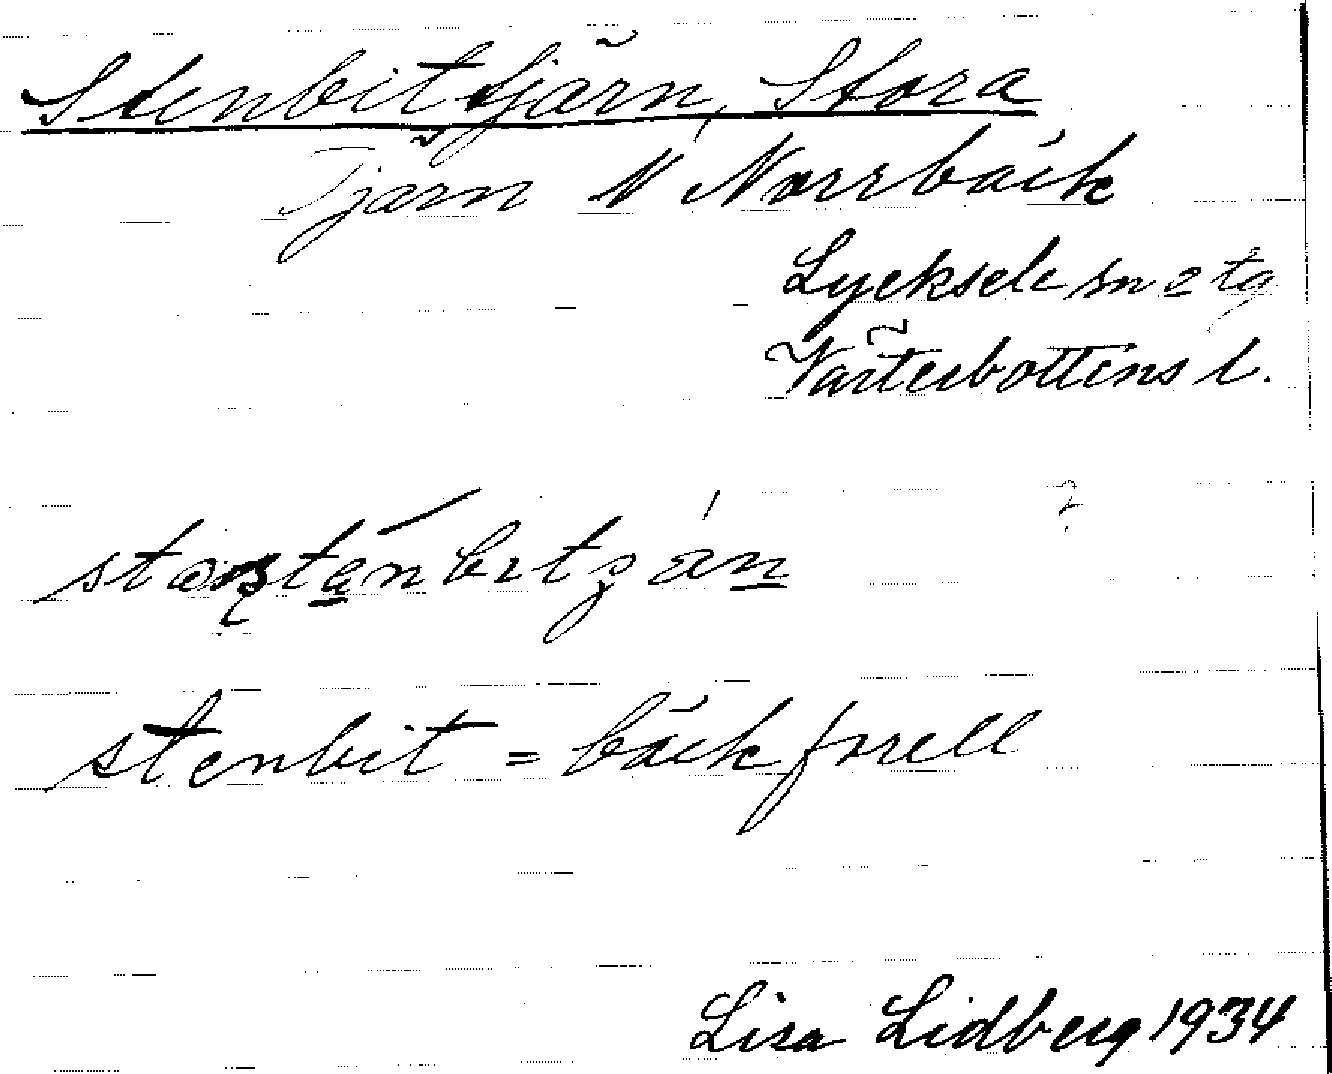 Stenbittjärn, Stora
Tjärn N Norrbäck
Lycksele sn
Västerbottens l.
stenbit = bäckforell
Lisa Lidberg 1934